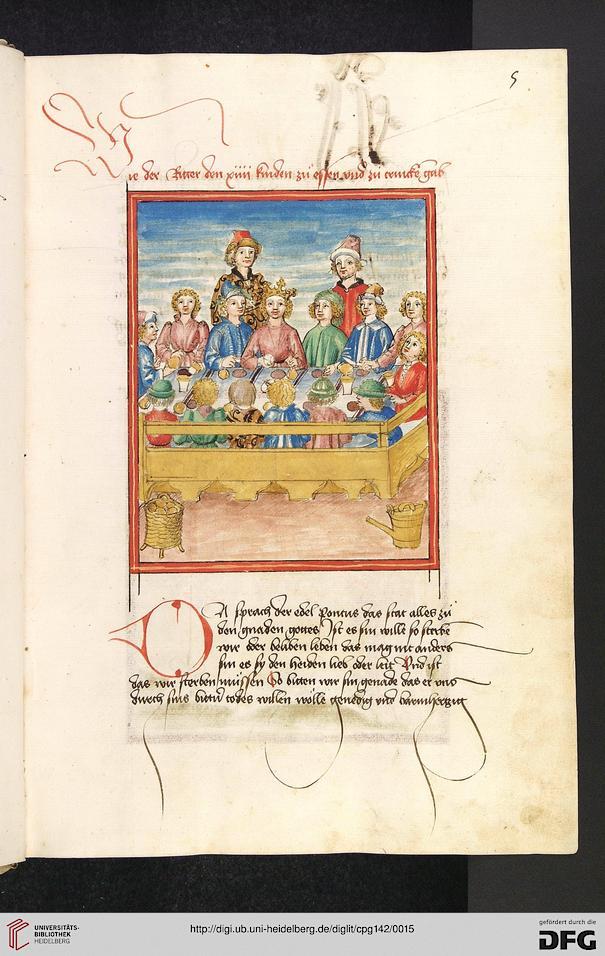 5
Wie der Ritter den xiiii kinden zu essen vnd zu trincke gab
DA sprach der edel Pontus das stat alles zü
den gnaden gottes Ist es sin wille so sterbē
wir oder beliben leben das mag nit anders
sin es sy den heiden lieb oder leit Vnd ist
das wir sterben müssen So bitten wir sin genade das er vns
durch sins bittern todes willen wölle genedig vnd barmhertzig
UNIVERSITÄTS-
BIBLIOTHEK
HEIDELBERG
http://digi.ub.uni-heidelberg.de/diglit/cpg142/0015
gefördert durch die
DFG